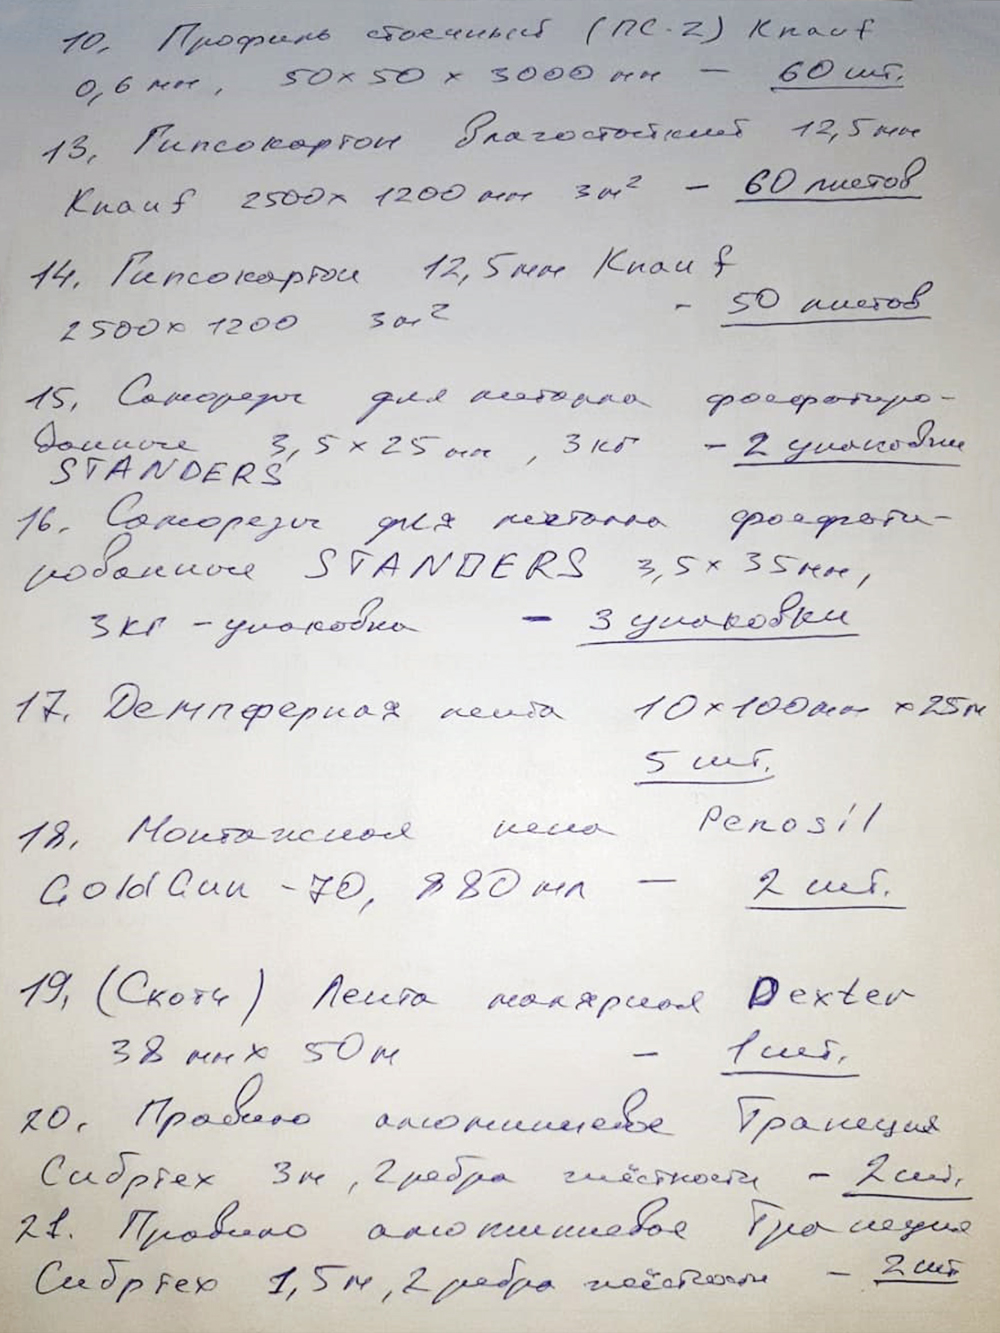 10. Профиль стоечный (ПС-2) Knauf
0,6 мм, 50×50×3000 мм — 60 шт.
13. Гипсокартон влагостойкий 12,5мм
Knauf 2500×1200 мм 3м² — 60 листов
14. Гипсокартон 12,5мм Knauf
2500×1200 3м² - 50 листов
15. Саморезы для металла фосфатиро-
ванные 3,5×25мм, 3кг - 2 упаковки
STANDERS
16. Саморезы для металла фосфати-
рованные STANDERS 3,5×35мм,
3кг - упаковка - 3 упаковки
17. Демпферная лента 10×100мм ×25м
5 шт.
18. Монтажная пена Penosil
GoldGun -70, 880 мл — 2 шт.
19. (Скотч) Лента малярная Dexter
38 мм× 50м - 1 шт.
20. Правило алюминиевое Трапеция
Сибртех 3м, 2 ребра жёсткости - 2 шт.
21. Правило алюминиевое Трапеция
Сибртех 1,5м, 2 ребра жёсткости - 2 шт